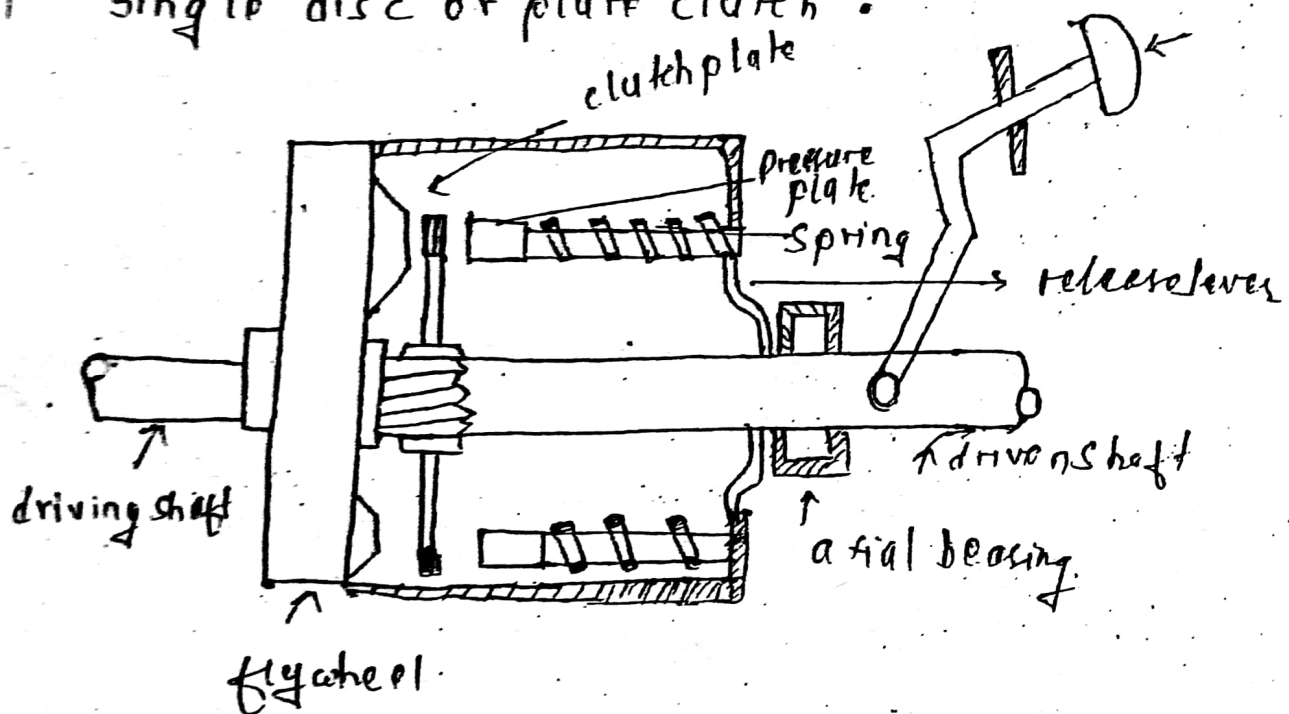 single disc or plate clutch :
clutchplate
pressure
plate.
spring
releaselever
driving shaft
driven shaft
axial bearing.
flywheel.